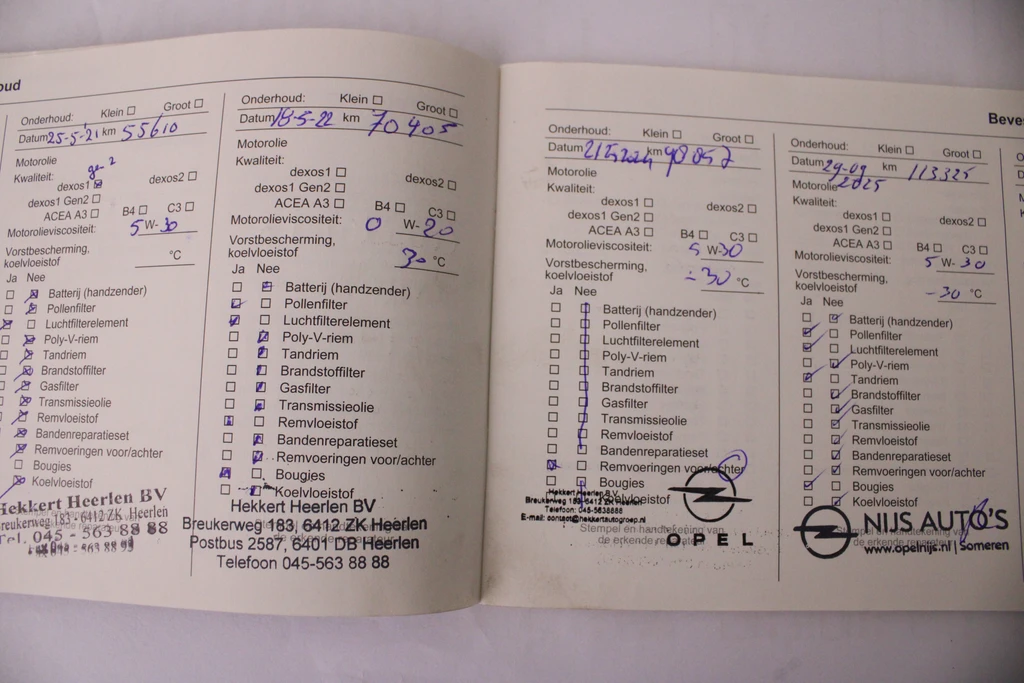 oud
Onderhoud: Klein ☐ Groot ☐
Datum 25-5-'21 km 55610
Motorolie
Kwaliteit:
dexos1 ☒ dexos2 ☐
dexos1 Gen2 ☐
ACEA A3 ☐ B4 ☐ C3 ☐
Motorolieviscositeit: 5 W- 30
Vorstbescherming,
koelvloeistof °C
Ja Nee
☐ ☒ Batterij (handzender)
☐ ☒ Pollenfilter
☒ ☐ Luchtfilterelement
☐ ☒ Poly-V-riem
☐ ☒ Tandriem
☐ ☒ Brandstoffilter
☐ ☒ Gasfilter
☐ ☒ Transmissieolie
☐ ☒ Remvloeistof
☐ ☒ Bandenreparatieset
☐ ☒ Remvoeringen voor/achter
☐ Bougies
☒ Koelvloeistof
Hekkert Heerlen BV
Breukerweg 183 - 6412 ZK Heerlen
Tel. 045 - 563 88 88
Onderhoud: Klein ☐ Groot ☐
Datum 18-5-22 km 70405
Motorolie
Kwaliteit:
dexos1 ☐ dexos2 ☐
dexos1 Gen2 ☐
ACEA A3 ☐ B4 ☐ C3 ☐
Motorolieviscositeit: 0 W- 20
Vorstbescherming,
koelvloeistof 30 °C
Ja Nee
☐ ☒ Batterij (handzender)
☒ ☐ Pollenfilter
☒ ☐ Luchtfilterelement
☐ ☒ Poly-V-riem
☐ ☒ Tandriem
☐ ☒ Brandstoffilter
☐ ☒ Gasfilter
☐ ☒ Transmissieolie
☒ ☐ Remvloeistof
☐ ☒ Bandenreparatieset
☐ ☒ Remvoeringen voor/achter
☒ ☐ Bougies
☐ ☒ Koelvloeistof
Hekkert Heerlen BV
Breukerweg 183, 6412 ZK Heerlen
Postbus 2587, 6401 DB Heerlen
Telefoon 045-563 88 88
Beves
Onderhoud: Klein ☐ Groot ☐
Datum km 98057
Motorolie
Kwaliteit:
dexos1 ☐ dexos2 ☐
dexos1 Gen2 ☐
ACEA A3 ☐ B4 ☐ C3 ☐
Motorolieviscositeit: 5 W-30
Vorstbescherming,
koelvloeistof -30 °C
Ja Nee
☐ ☐ Batterij (handzender)
☐ ☐ Pollenfilter
☐ ☐ Luchtfilterelement
☐ ☐ Poly-V-riem
☐ ☐ Tandriem
☐ ☐ Brandstoffilter
☐ ☐ Gasfilter
☐ ☐ Transmissieolie
☐ ☐ Remvloeistof
☐ ☐ Bandenreparatieset
☒ ☐ Remvoeringen voor/achter
☐ ☐ Bougies
Koelvloeistof
Hekkert Heerlen B.V.
Breukerweg 183, 6412 ZK Heerlen
Telefoon: 045-5638888
E-mail: contact@hekkertautogroep.nl
Stempel en handtekening van
de erkende reparateur
OPEL
Onderhoud: Klein ☐ Groot ☐
Datum 29-09 2025 km 113325
Motorolie
Kwaliteit:
dexos1 ☐ dexos2 ☐
dexos1 Gen2 ☐
ACEA A3 ☐ B4 ☐ C3 ☐
Motorolieviscositeit: 5 W- 30
Vorstbescherming,
koelvloeistof -30 °C
Ja Nee
☐ ☒ Batterij (handzender)
☒ ☐ Pollenfilter
☒ ☐ Luchtfilterelement
☐ ☒ Poly-V-riem
☒ ☐ Tandriem
☐ ☒ Brandstoffilter
☐ ☒ Gasfilter
☐ ☒ Transmissieolie
☐ ☒ Remvloeistof
☐ ☒ Bandenreparatieset
☐ ☒ Remvoeringen voor/achter
☒ ☐ Bougies
☐ ☒ Koelvloeistof
NIJS AUTO'S
www.opelnijs.nl | Someren